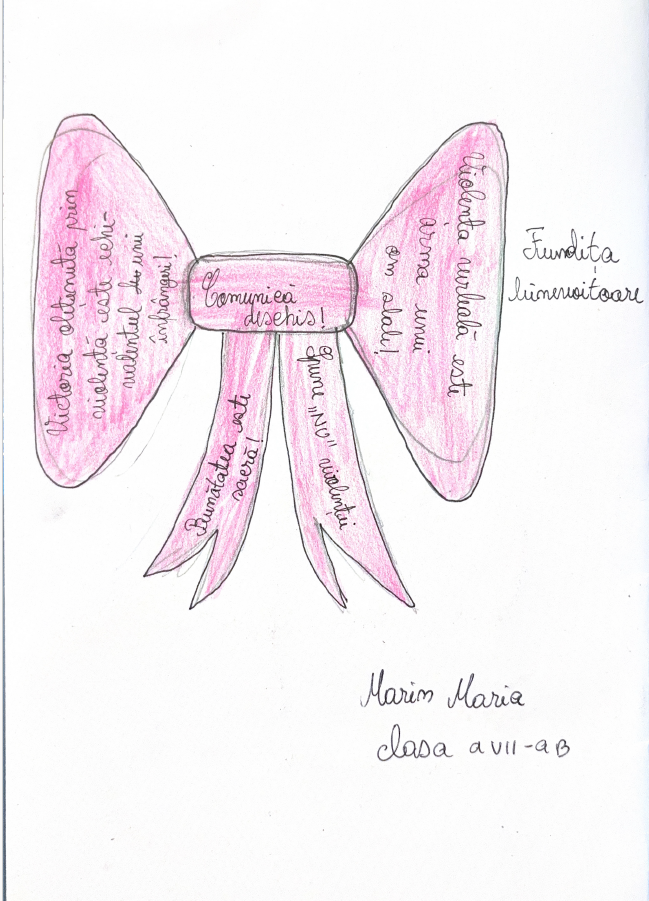 Victoria obținută prin
violență este echi-
valentul unei
înfrângeri!
Comunică
deschis!
Violența verbală este
arma unui
om slab!
Bunătatea este
sacră!
Spune „NU" violenței
Fundița
binevoitoare
Marin Maria
clasa a VII-a B